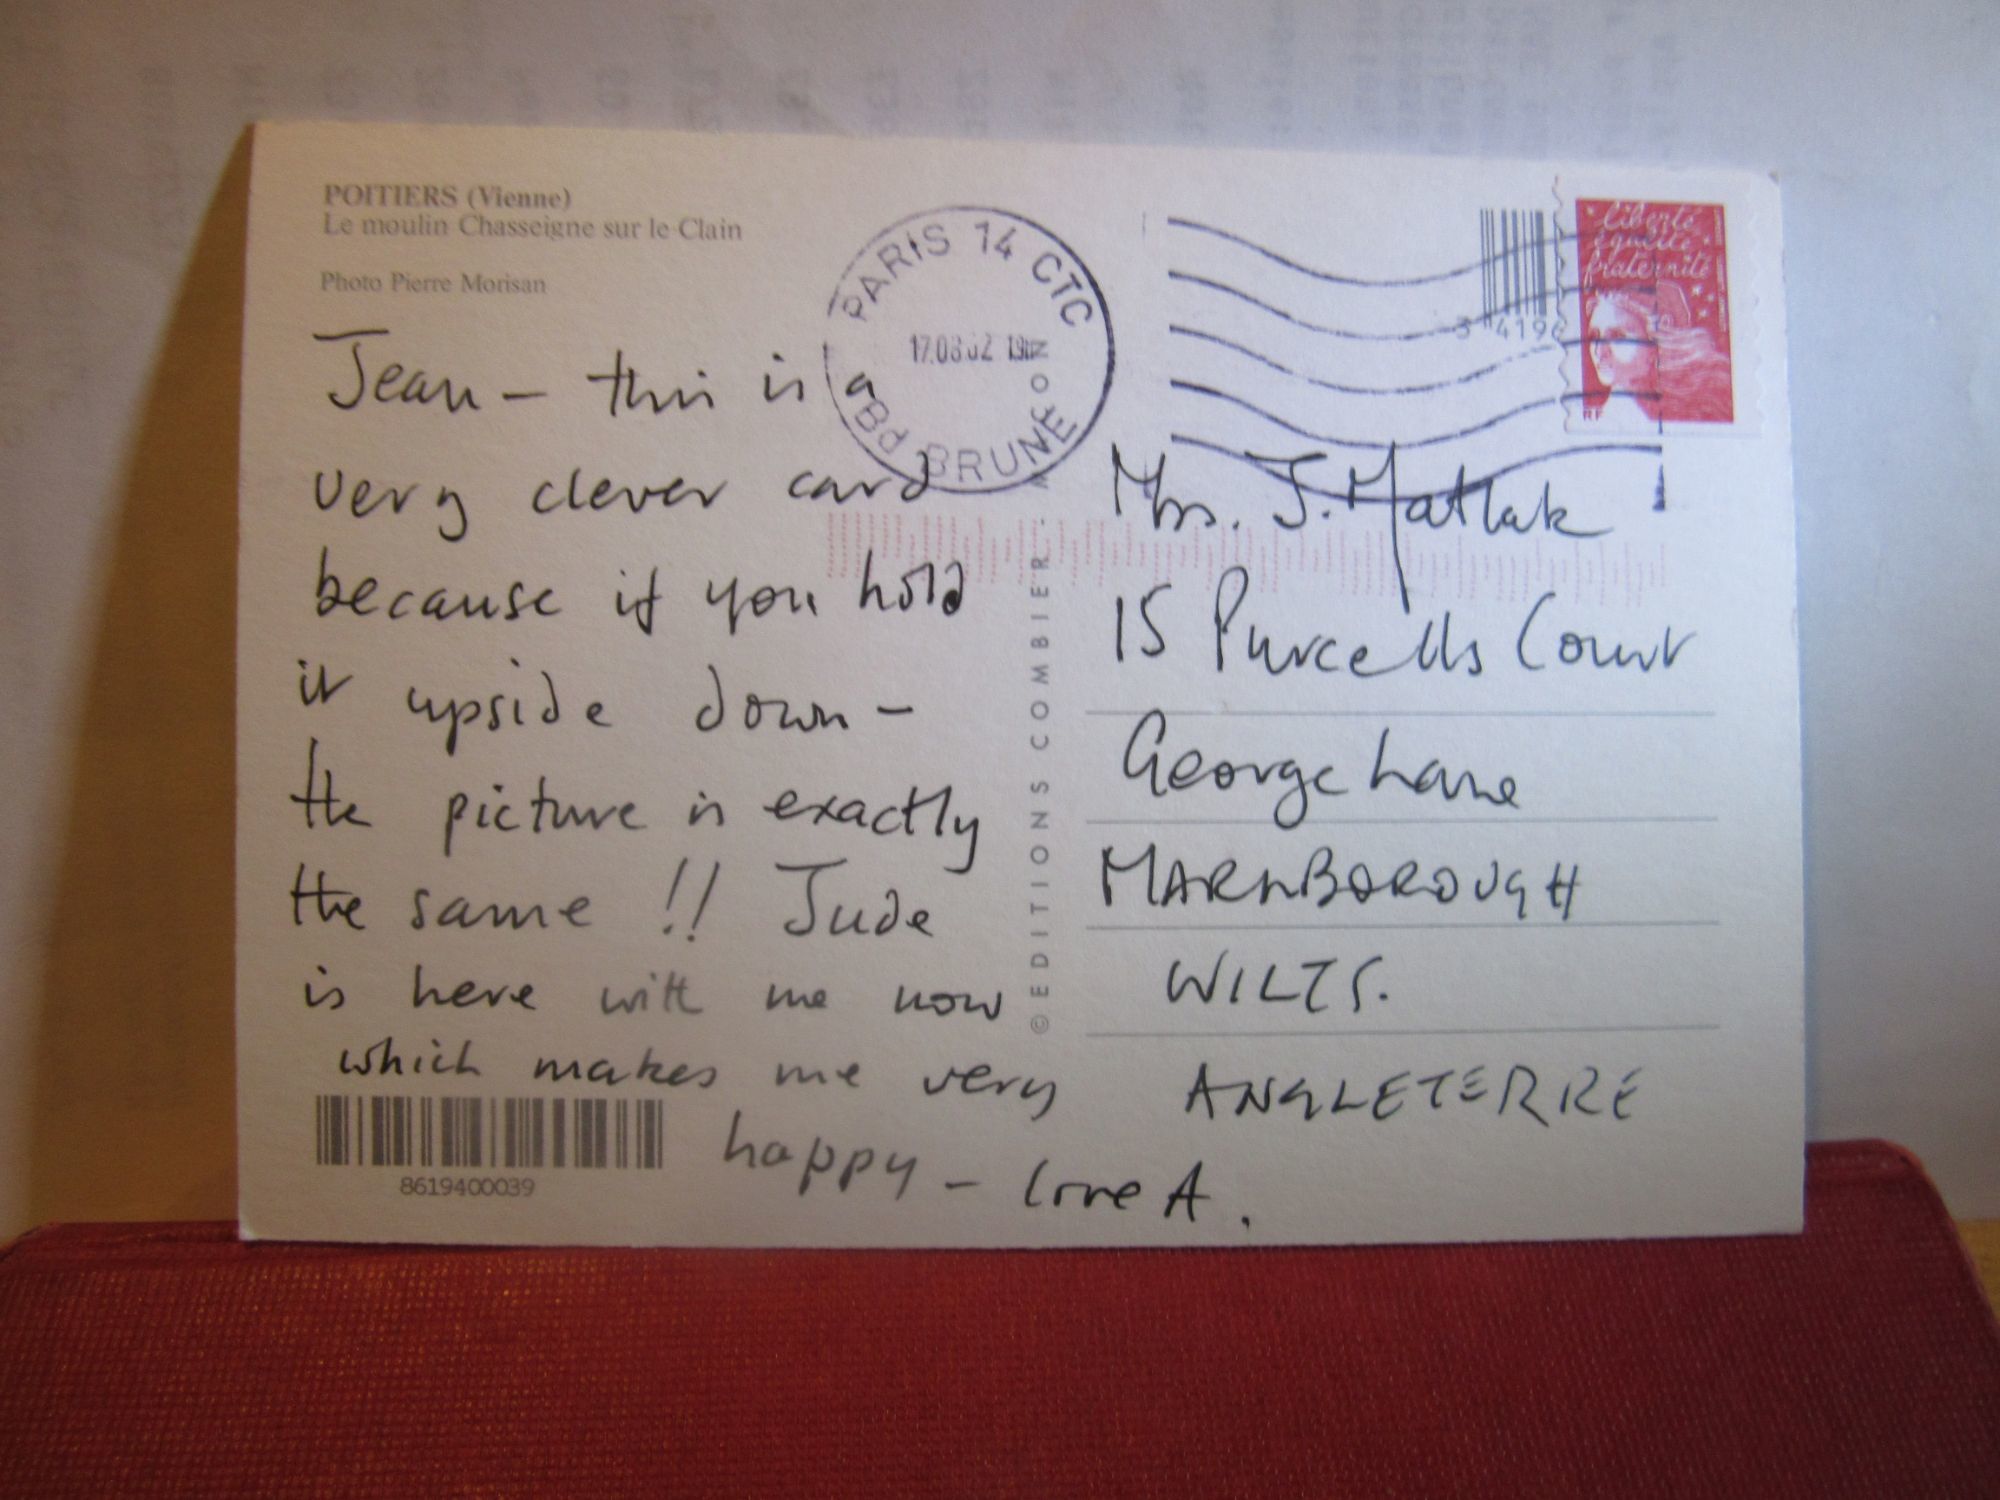 POITIERS (Vienne)
Le moulin Chasseigne sur le Clain
Photo Pierre Morisan
Jean – this is a
very clever card
because if you hold
it upside down –
the picture is exactly
the same !! Jude
is here with me now
which makes me very
happy – love A.
8619400039
PARIS 14 CTC
17.08.02
Bd BRUNE
© EDITIONS COMBIER - MÂCON
3 4196
liberté
égalité
fraternité
RF
Mrs. J. Matlak
15 Purcells Court
George Lane
MARLBOROUGH
WILTS.
ANGLETERRE